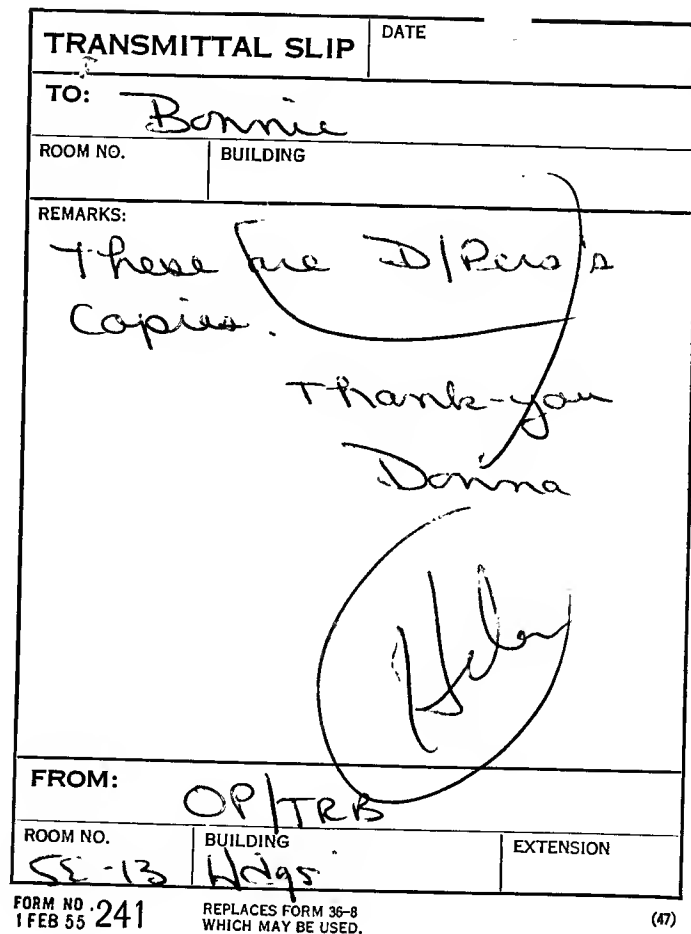 TRANSMITTAL SLIP
DATE
TO: Bonnie
ROOM NO.
BUILDING
REMARKS:
These are D/Pers's
Copies.
Thank-you
Donna
Helen
FROM:
OP/TRB
ROOM NO.
BUILDING
EXTENSION
5E-13
Hdqs
FORM NO. 241
1 FEB 55
REPLACES FORM 36-8
WHICH MAY BE USED.
(47)